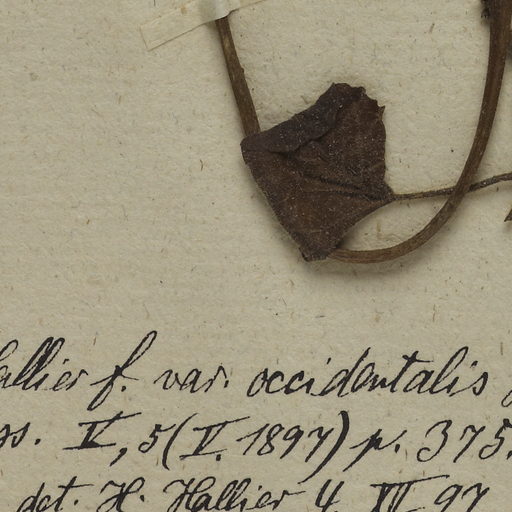 Hallier f. var. occidentalis
ss. V, 5 (V. 1897) p. 375.
det. H. Hallier 4. XII. 97